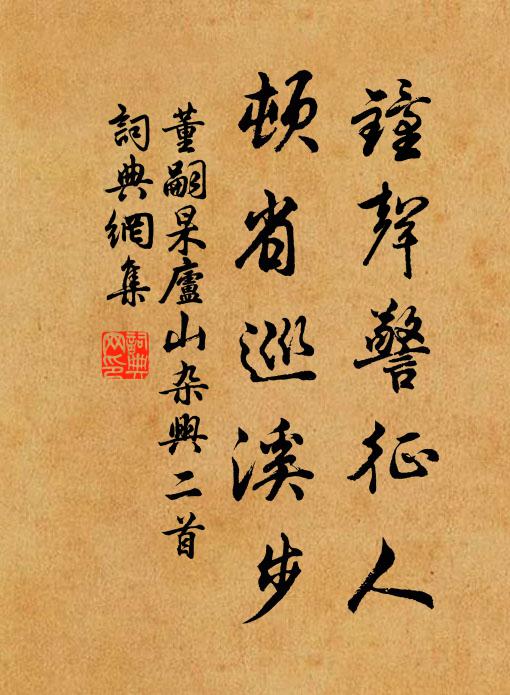 鐘聲警征人
頓省巡溪步
董嗣杲廬山杂興二首
詞典網集
詞典网印